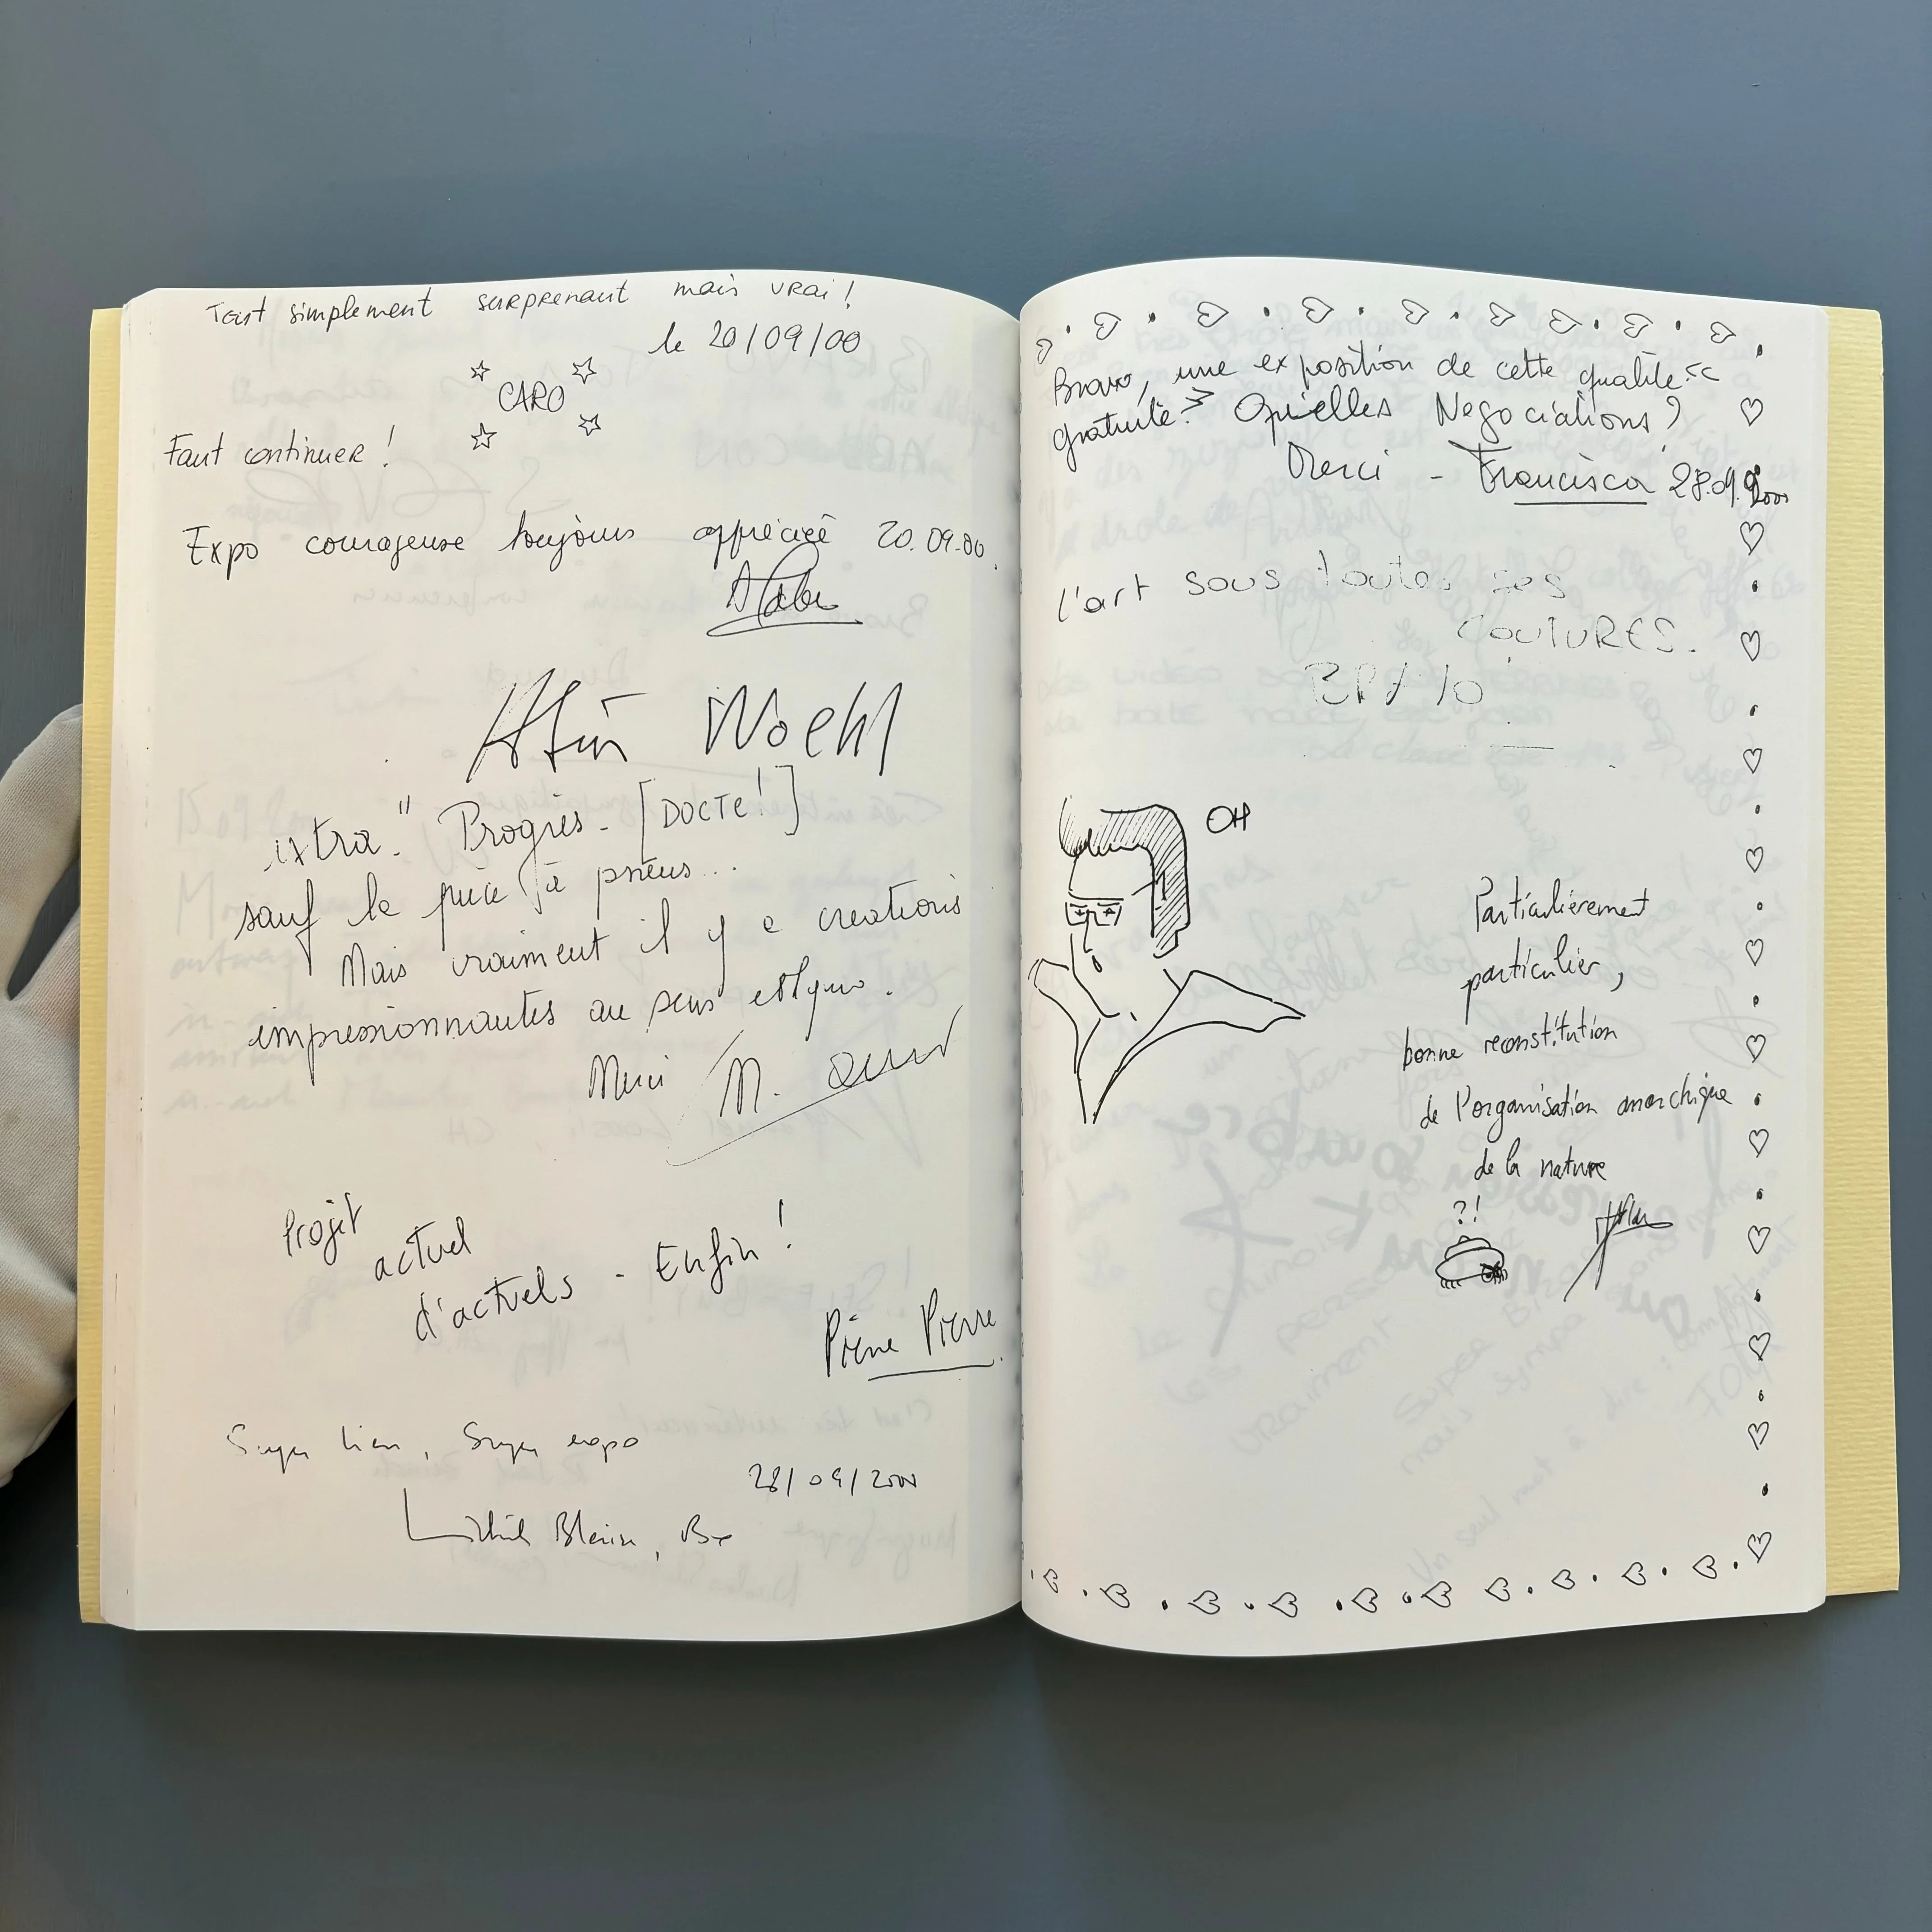 Tout simplement surprenant mais vrai!
le 20/09/00
CARO
Faut continuer!
Expo courageuse toujours apprécié 20.09.00.
Woehl
extra" Progrès - [DOCTE!]
sauf la pièce à pneus...
Mais vraiment il y a creations
impressionnantes au sens
Merci M.
Projet
actuel
d'actuels - Enfin!
Pierre Pierre
Super lieu, Super expo
28/09/2000
Bravo, une exposition de cette qualité <<
gratuite >> Quelles Negociations?
Merci - Francisca 28.09.2000
l'art sous toutes ses
COUTURES.
BRAVO
OH
Particulièrement
particulier,
bonne reconstitution
de l'organisation anarchique
de la nature
?!